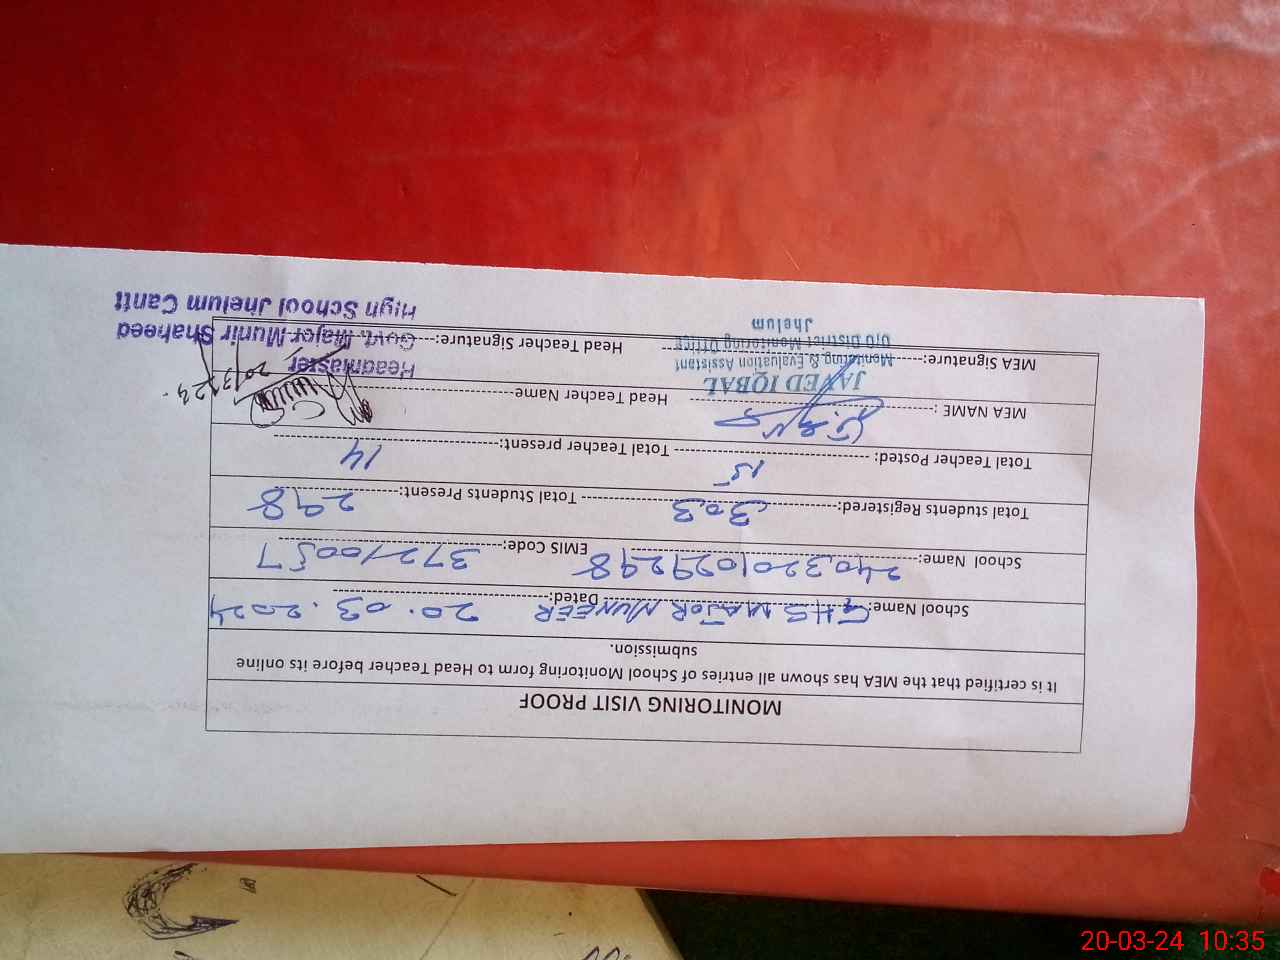 MONITORING VISIT PROOF
It is certified that the MEA has shown all entries of School Monitoring form to Head Teacher before its online
submission.
School Name: GHS MAJOR MUNEER Dated: 20.03.2024
School Name: EMIS Code: 37210057
Total students Registered: 303 Total Students Present: 298
Total Teacher Posted: 15 Total Teacher present: 14
MEA NAME : Head Teacher Name
MEA Signature: Head Teacher Signature:
JAVED IQBAL
Monitoring & Evaluation Assistant
O/o District Monitoring Office
Jhelum
Headmaster
Govt. Major Munir Shaheed
High School Jhelum Cantt
20-03-24 10:35